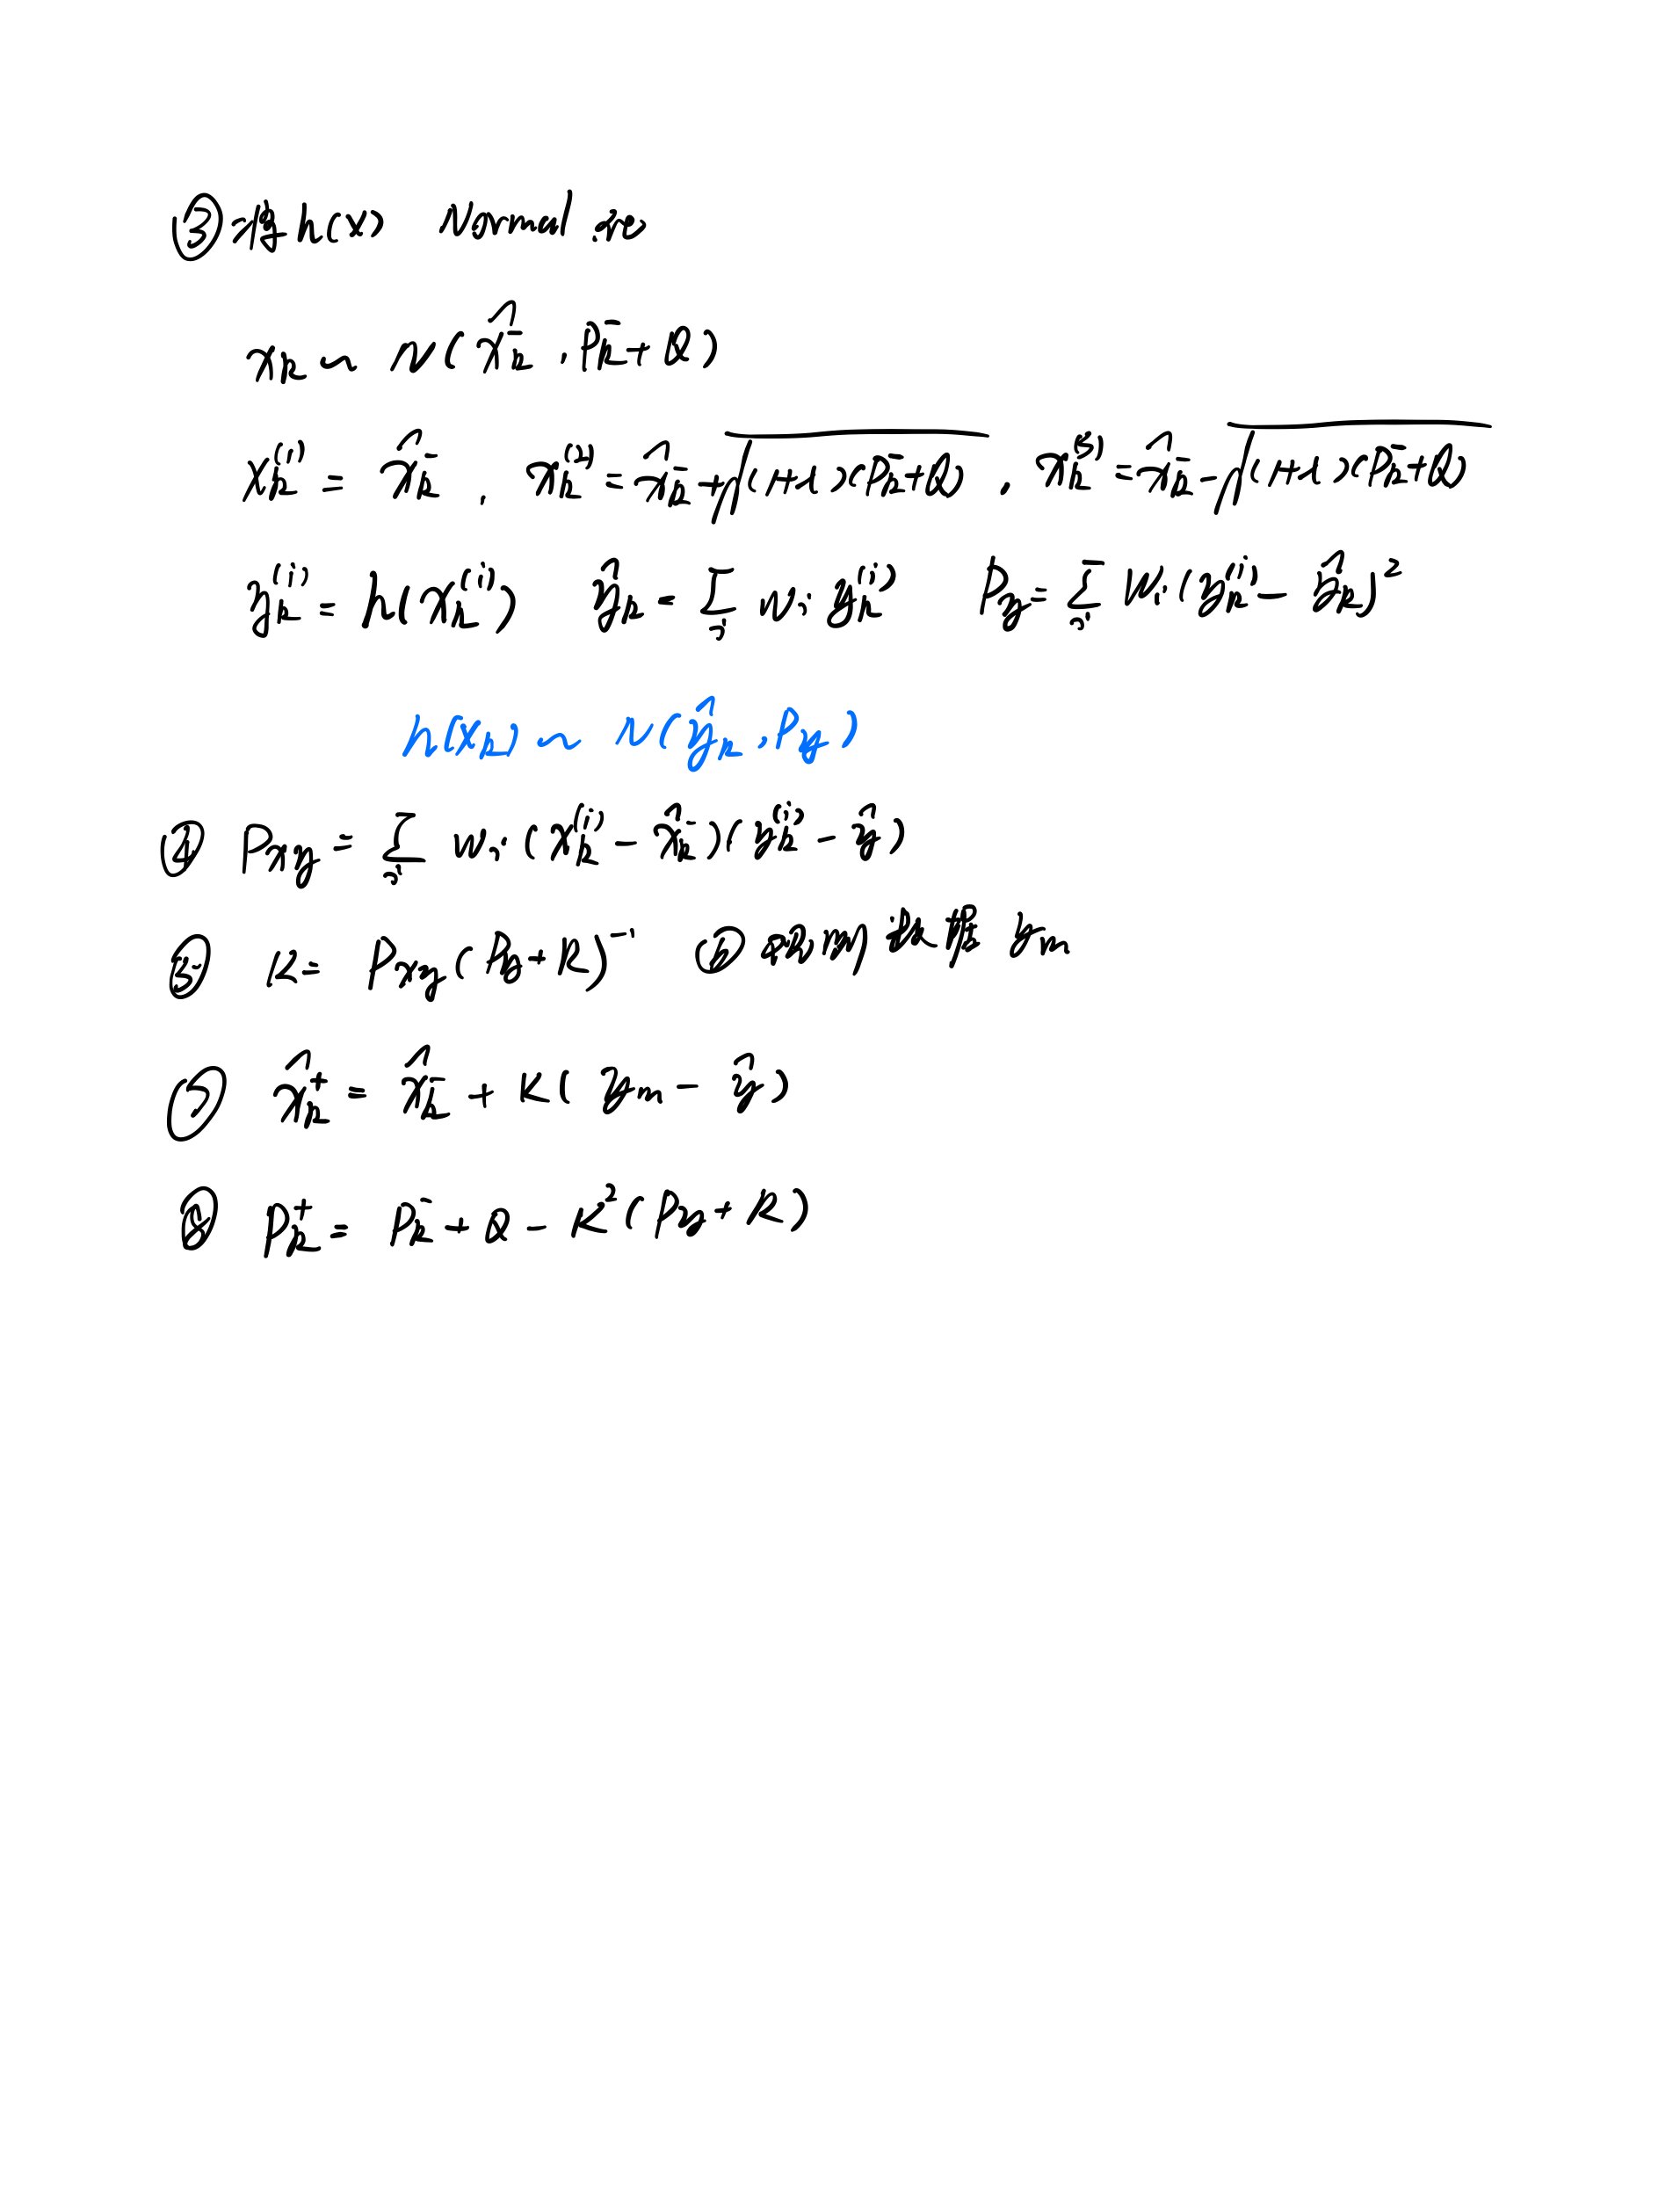 ③ 将 h(x) Normal 化
x_k ~ N( x̂_k^- , P_k^- + Q )
x_k^{(0)} = x̂_k^- , x_k^{(1)} = x̂_k^- + √((n+λ)(P_k^- + Q)) , x_k^{(2)} = x̂_k^- - √((n+λ)(P_k^- + Q))
y_k^{(i)} = h(x_k^{(i)}) ŷ_k = Σ_i w_i y_k^{(i)} P_y = Σ_i w_i (y_k^{(i)} - ŷ_k)²
h(x_k) ~ N( ŷ_k , P_y )
④ P_xy = Σ_i w_i (x_k^{(i)} - x̂_k^-)(y_k^{(i)} - ŷ)
⑤ K = P_xy (P_y + R)^{-1} ⑥ 获得 y_m
⑦ x̂_k^+ = x̂_k^- + K( y_m - ŷ )
⑧ P_k^+ = P_k^- + Q - K² (P_y + R)